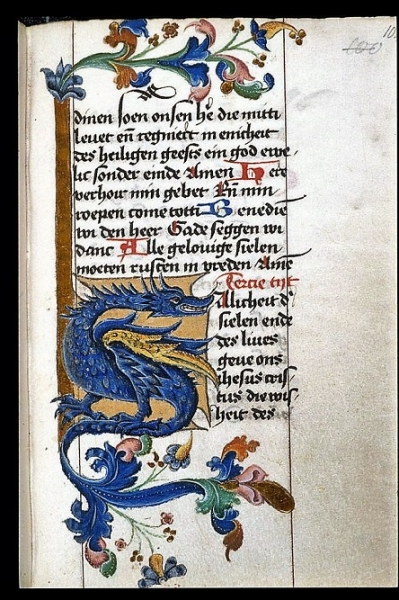 dinen soen onsen he die mitti
levet en regniert in enicheit
des heiligen geests ein god ewe-
lic sonder einde Amen Here
verhoir min gebet En min
roepen come totti Benedie
wi den heer Gade seggen wi
danc Alle gelovige sielen
moeten rusten in vreden Ame
Tercie tijt
Salicheit d'
sielen ende
des lives
geve ons
ihesus cris-
tus die wis-
heit des